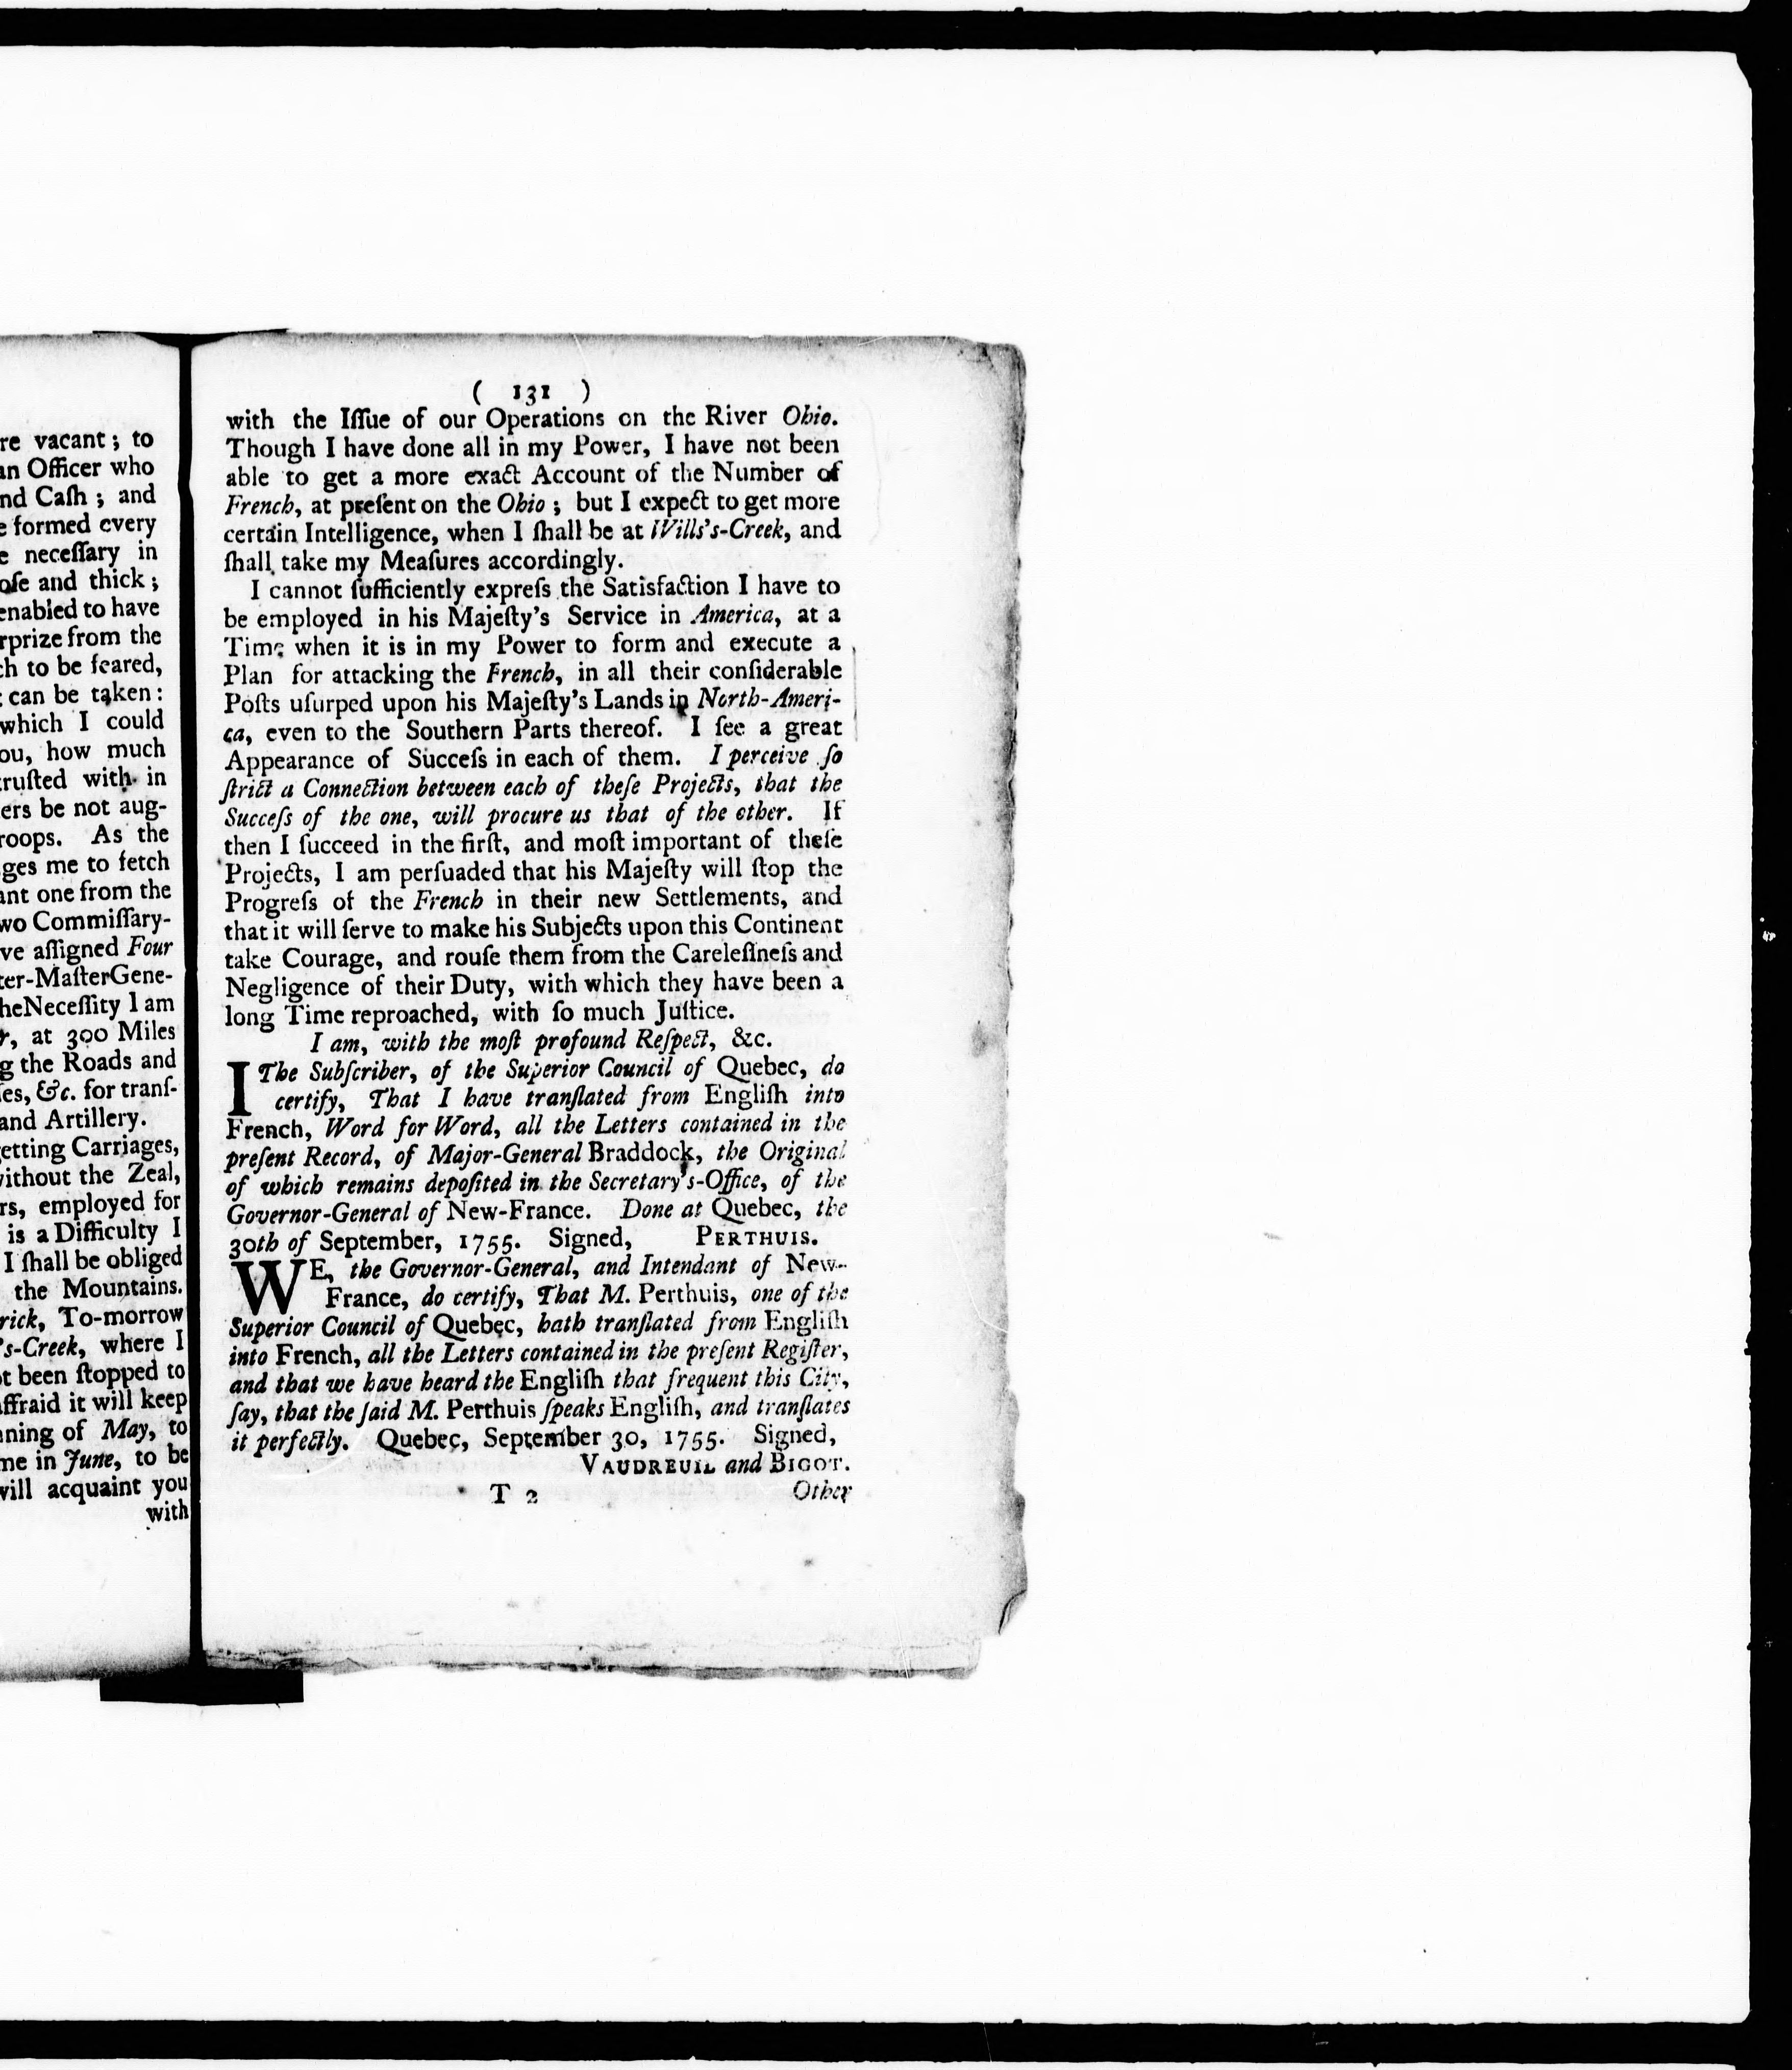 re vacant; to
an Officer who
nd Caſh; and
e formed every
e neceſſary in
oſe and thick;
enabled to have
rprize from the
ch to be feared,
can be taken:
which I could
ou, how much
truſted with in
ers be not aug-
roops. As the
ges me to fetch
ant one from the
wo Commiſſary-
ve aſſigned Four
ter-MaſterGene-
heNeceſſity I am
r, at 300 Miles
g the Roads and
es, &c. for tranſ-
and Artillery.
etting Carriages,
vithout the Zeal,
rs, employed for
is a Difficulty I
I ſhall be obliged
the Mountains.
rick, To-morrow
's-Creek, where I
ot been ſtopped to
affraid it will keep
nning of May, to
me in June, to be
will acquaint you
with
( 131 )
with the Iſſue of our Operations on the River Ohio.
Though I have done all in my Power, I have not been
able to get a more exact Account of the Number of
French, at preſent on the Ohio; but I expect to get more
certain Intelligence, when I ſhall be at Wills's-Creek, and
ſhall take my Meaſures accordingly.
I cannot ſufficiently expreſs the Satisfaction I have to
be employed in his Majeſty's Service in America, at a
Time when it is in my Power to form and execute a
Plan for attacking the French, in all their conſiderable
Poſts uſurped upon his Majeſty's Lands in North-Ameri-
ca, even to the Southern Parts thereof. I ſee a great
Appearance of Succeſs in each of them. I perceive ſo
ſtrict a Connection between each of theſe Projects, that the
Succeſs of the one, will procure us that of the other. If
then I ſucceed in the firſt, and moſt important of theſe
Projects, I am perſuaded that his Majeſty will ſtop the
Progreſs of the French in their new Settlements, and
that it will ſerve to make his Subjects upon this Continent
take Courage, and rouſe them from the Careleſineſs and
Negligence of their Duty, with which they have been a
long Time reproached, with ſo much Juſtice.
I am, with the moſt profound Reſpect, &c.
I The Subſcriber, of the Superior Council of Quebec, do
certify, That I have tranſlated from Engliſh into
French, Word for Word, all the Letters contained in the
preſent Record, of Major-General Braddock, the Original
of which remains depoſited in the Secretary's-Office, of the
Governor-General of New-France. Done at Quebec, the
30th of September, 1755. Signed, PERTHUIS.
WE, the Governor-General, and Intendant of New-
France, do certify, That M. Perthuis, one of the
Superior Council of Quebec, hath tranſlated from Engliſh
into French, all the Letters contained in the preſent Regiſter,
and that we have heard the Engliſh that frequent this City,
ſay, that the ſaid M. Perthuis ſpeaks Engliſh, and tranſlates
it perfectly. Quebec, September 30, 1755. Signed,
VAUDREUIL and BIGOT.
T 2 Other